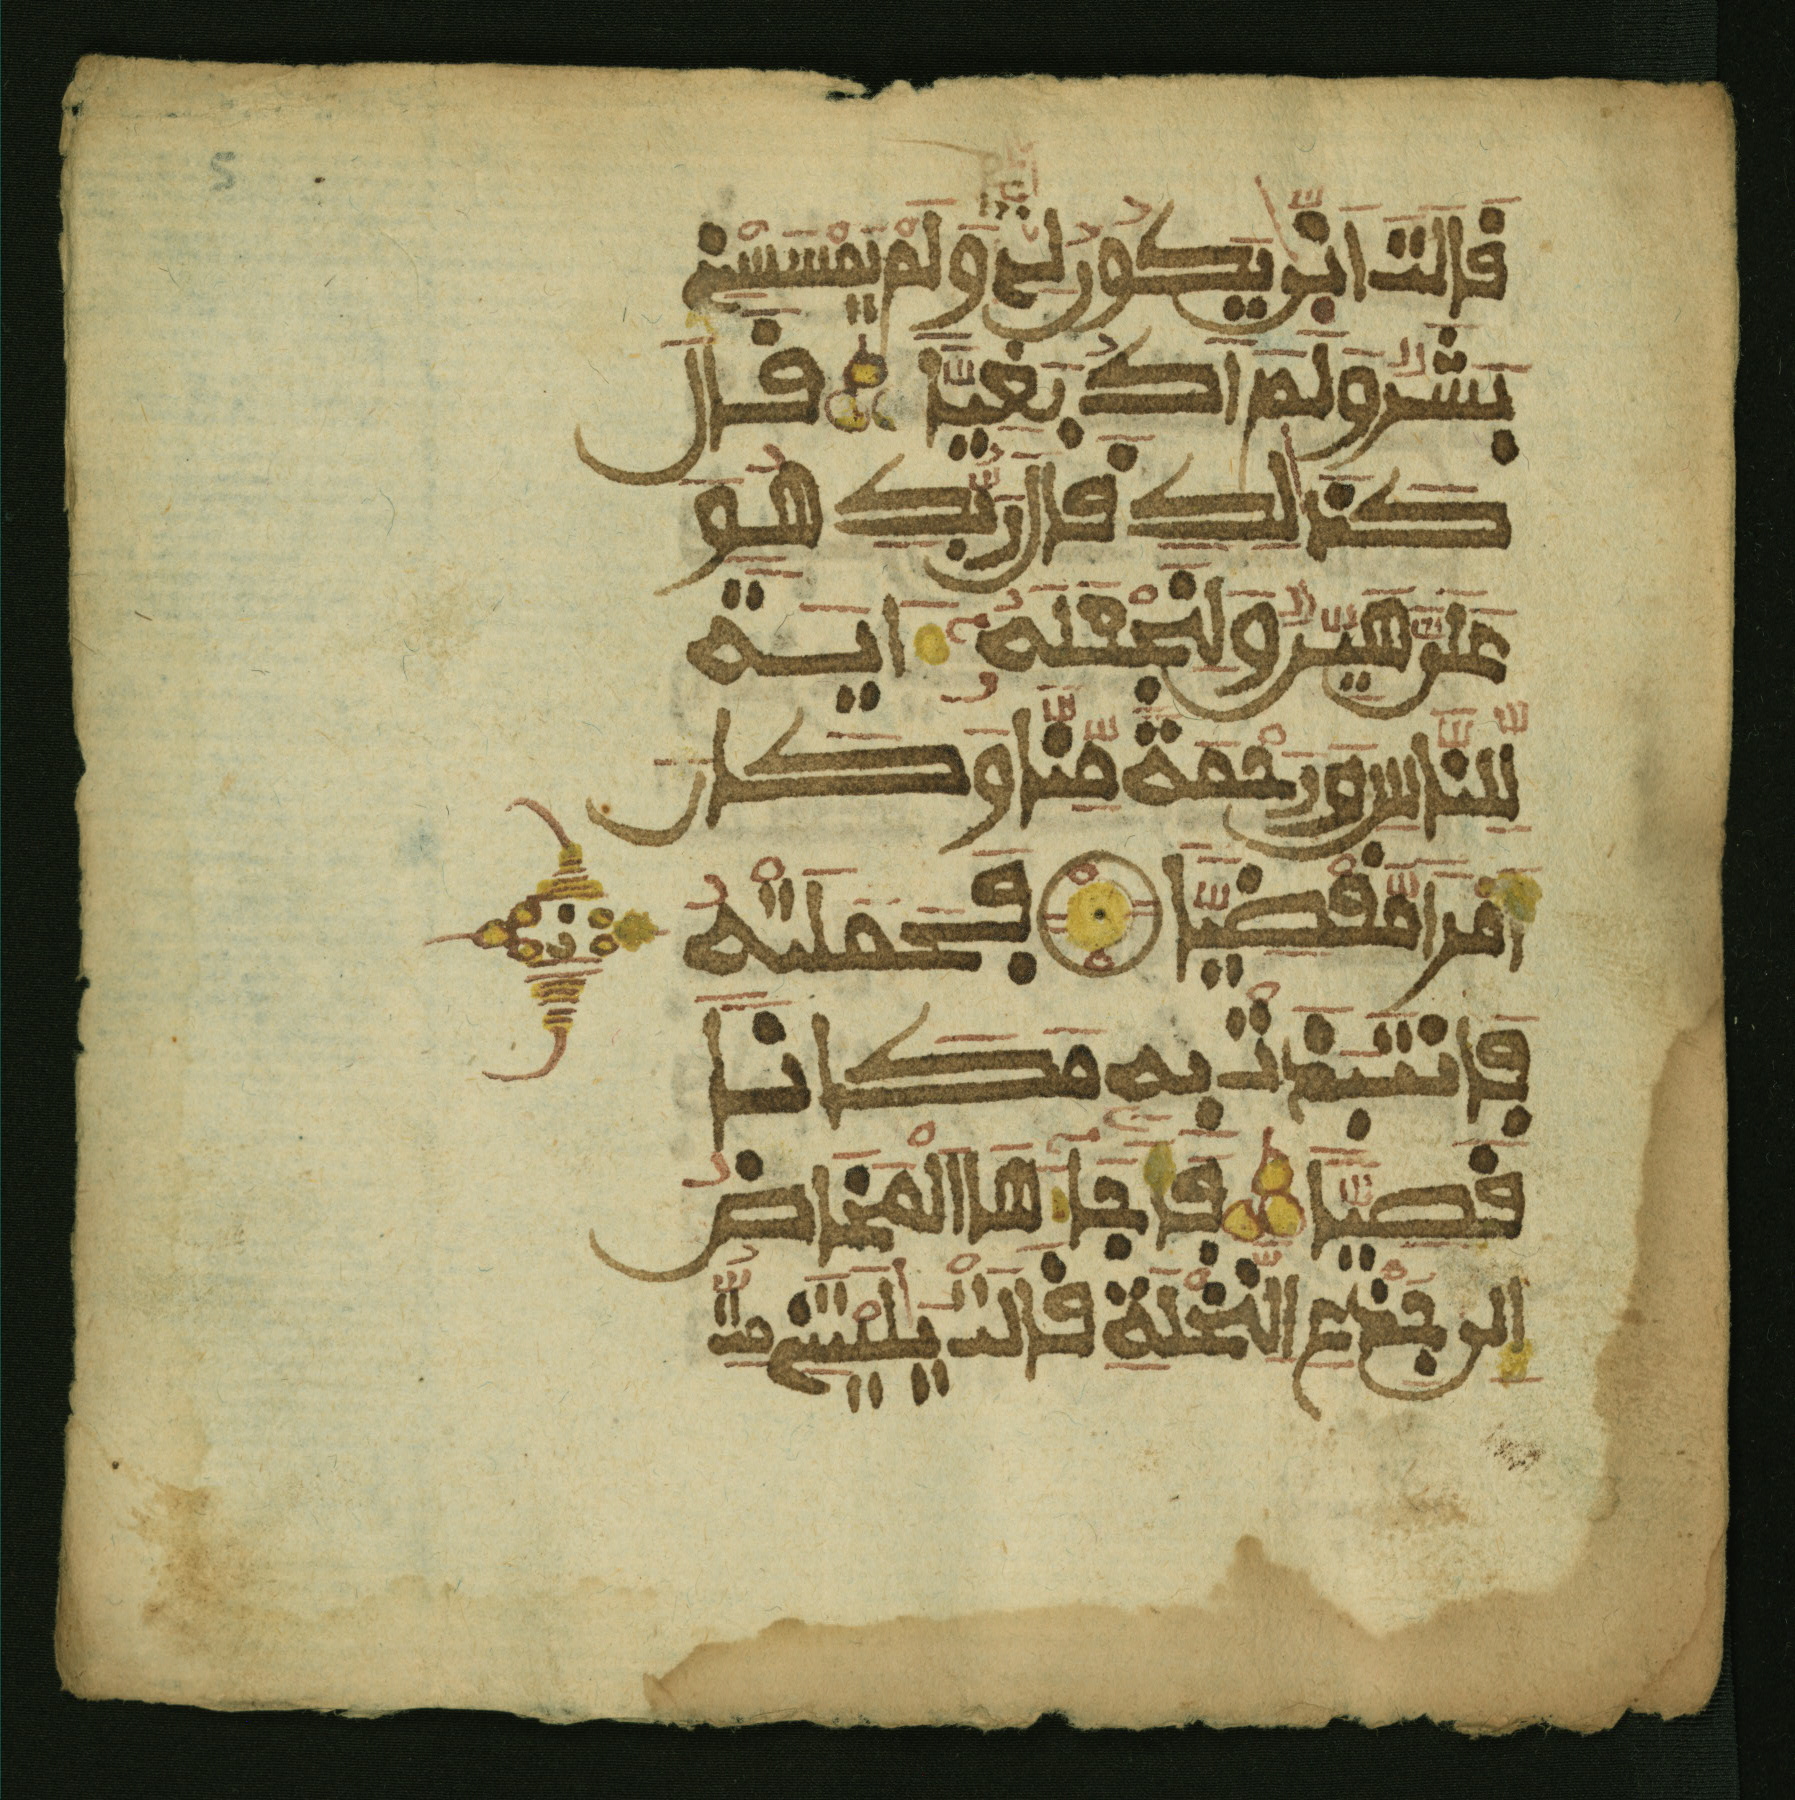 قالت انى يكون لي ولم يمسسني
بشر ولم اك بغيا قال
كذلك قال ربك هو
علي هين ولنجعله اية
للناس ورحمة منا وكان
امرا مقضيا فحملته
فانتبذت به مكانا
قصيا فاجاءها المخاض
الى جذع النخلة قالت يليتني مت